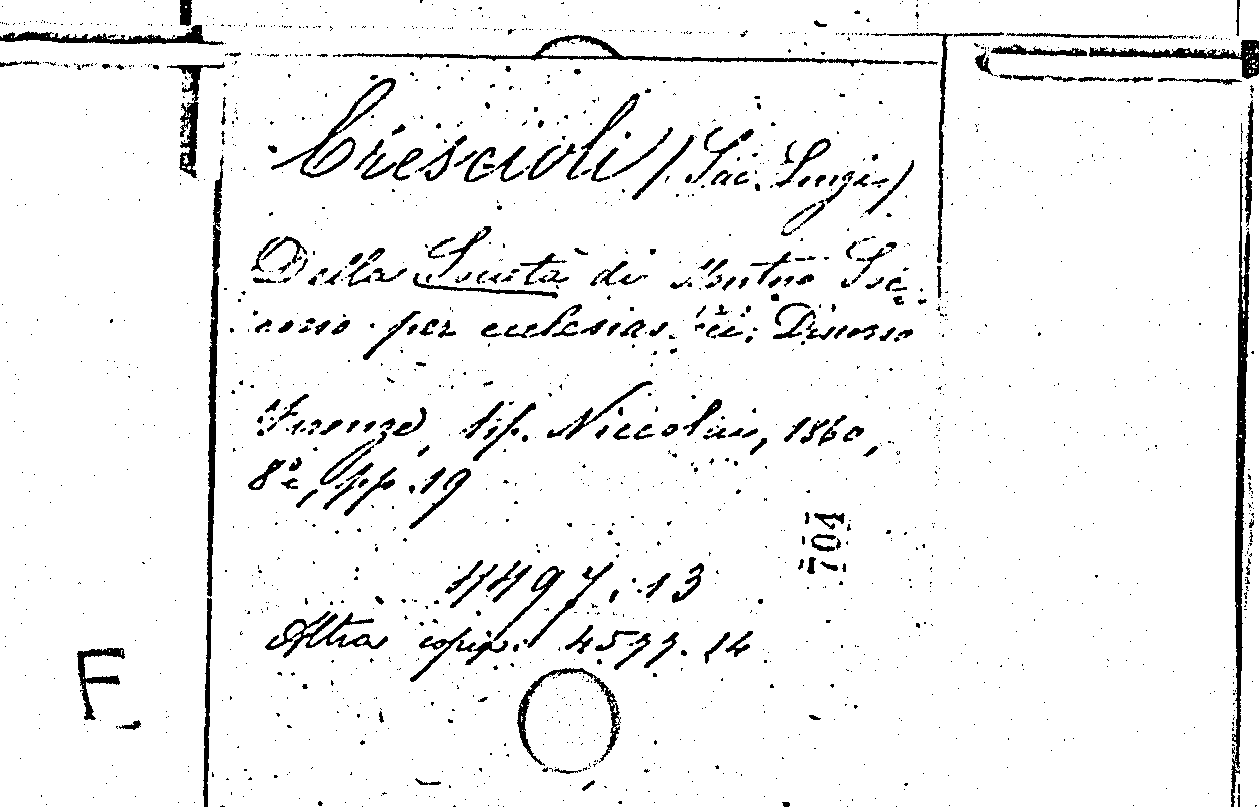 Crescioli (Sac. Luigi)
Della Società di Mutuo Soc-
corso per ecclesiastici; Discorso
Firenze, tip. Niccolai, 1860,
8°, pp. 19
704
4497.13
Altra copia: 4577.14
F.